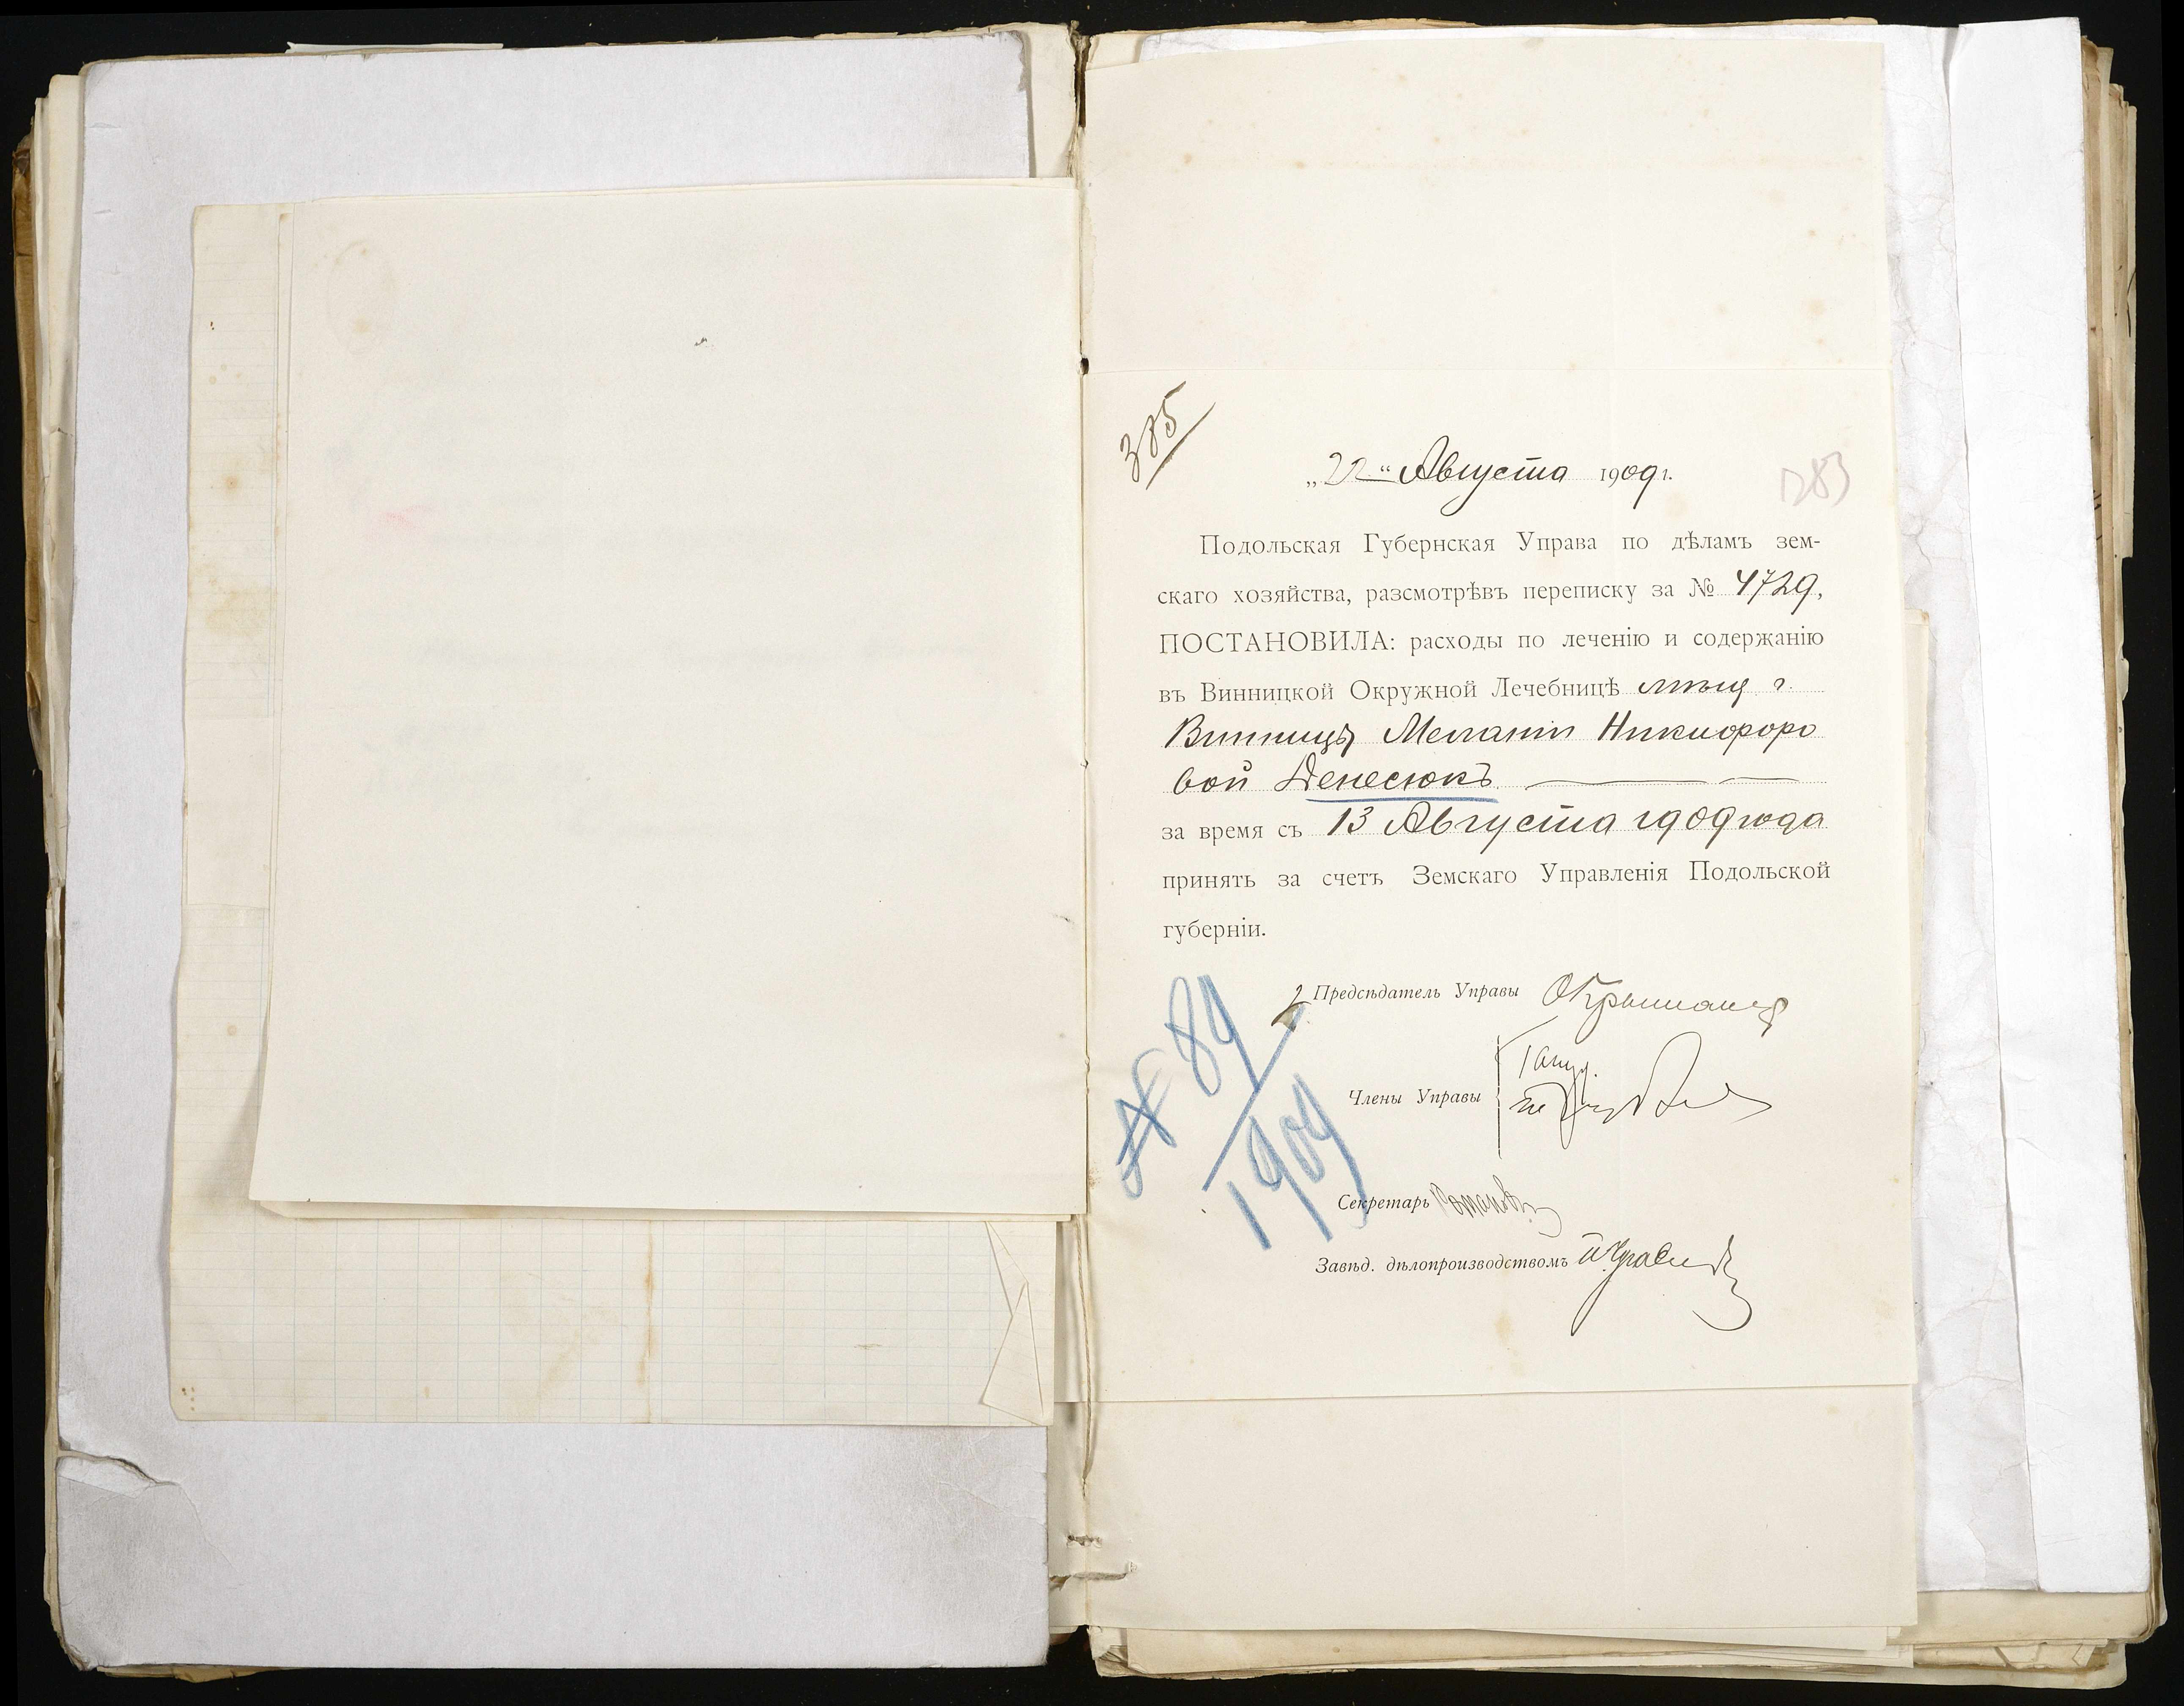 385
„22“ Августа 1909 г.
283
Подольская Губернская Управа по дѣламъ зем-
скаго хозяйства, разсмотрѣвъ переписку за № 4729,
ПОСТАНОВИЛА: расходы по леченію и содержанію
въ Винницкой Окружной Лечебницѣ мѣщ. г.
Винницы Меланіи Никифоро
вой Денесюкъ
за время съ 13 Августа 1909 года
принять за счетъ Земскаго Управленія Подольской
губерніи.
Предсѣдатель Управы
Члены Управы
№ 89
1909
Секретарь Романов
Завѣд. дѣлопроизводствомъ